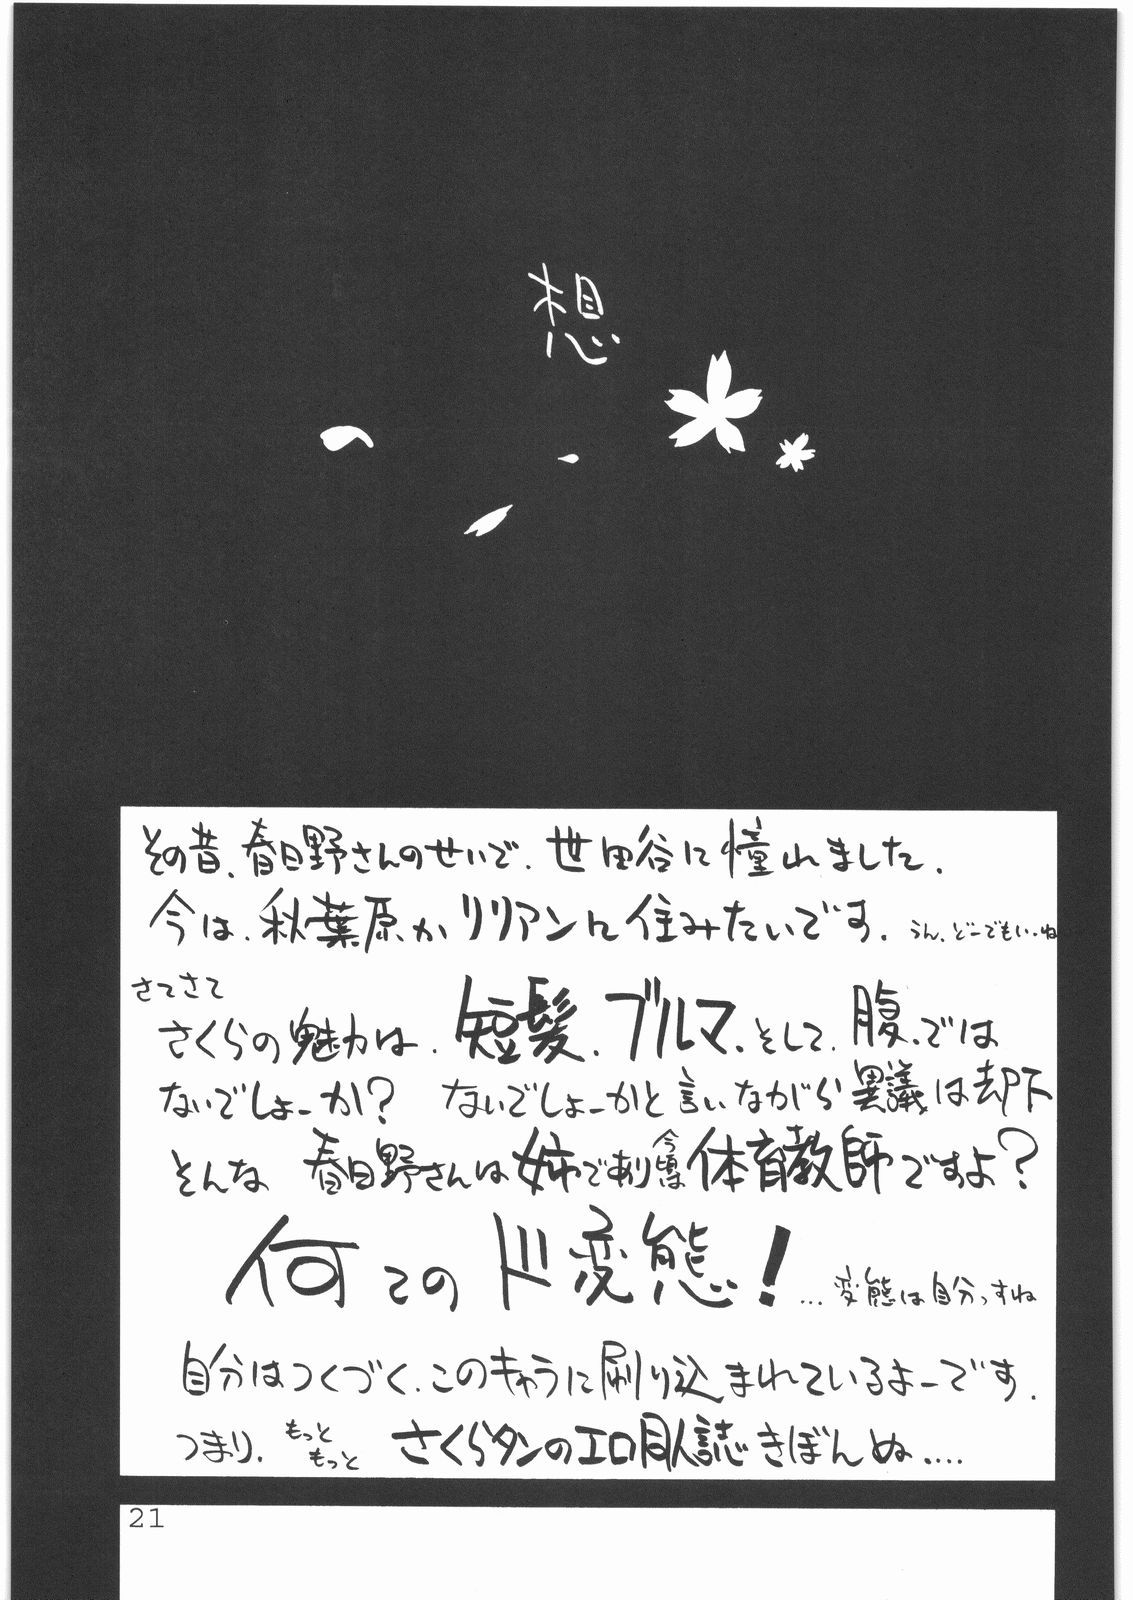 想
その昔、春日野さんのせいで、世田谷に憧れました.
今は、秋葉原かリリアンに住みたいです. うん、どーでもい..ね
さてさて
さくらの魅力は、短髪、ブルマ、そして、腹、では
ないでしょーか? ないでしょーかと言いながら異議は却下
そんな 春日野さんは姉であり今頃は体育教師ですよ?
何てのド変態! ...変態は自分っすね
自分はつくづく、このキャラに刷り込まれているよーです.
つまり、もっともっと さくらタンのエロ同人誌きぼんぬ....
21